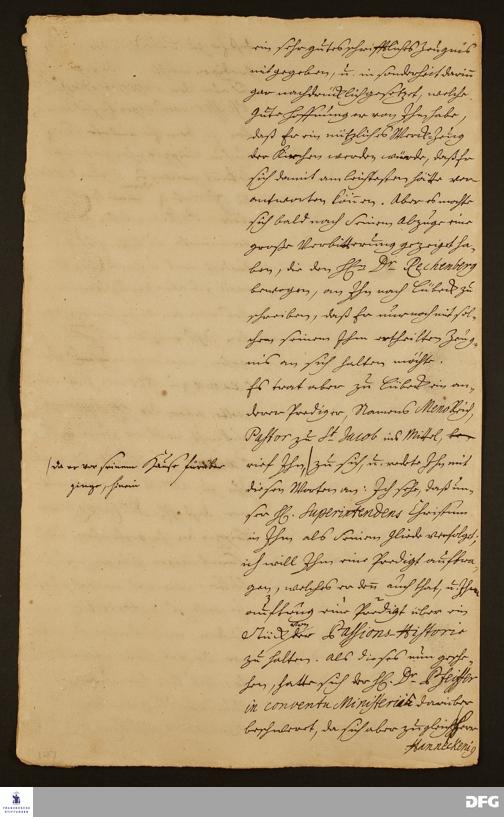 ein sehr gutes schrifftliches Zeugnis
mitgegeben, u. in sonderheit darin
gar nachdrücklich gesetzet, welche
gute Hoffnung er von Ihm habe,
daß Er ein nützliches Werck-Zeug
der Kirchen werden würde, daß Er
sich damit am leichtesten hätte ver-
antworten können. Aber es mochte
sich bald nach seinem Abzuge eine
große Verbitterung gezeiget ha-
ben, die den H. Dr. Rechenberg
bewogen, an Ihn nach Lübeck zu
schreiben, daß Er nur noch mit sol-
chem seinem Ihm ertheilten Zeug-
nis an sich halten möchte.
Es trat aber zu Lübeck ein an-
derer Prediger, Namens
Pastor zu St. Jacob ins Mittel,
/ da er vor seinem Hause fürüber
ginge, herein
rief Ihn / zu sich, u. redete Ihn mit
diesen Worten an: Ich sehe, daß un-
ser H. Superintendens Christum
in Ihm als seinem Gliede verfolget;
ich will Ihm eine Predigt auftra-
gen, welches er denn auch that, u. Ihm
auftrug eine Predigt über ein
Stück von der Passions-Historie
zu halten. Als dieses nun gesche-
hen, hatte sich der H. Dr. Pfeiffer
in conventu Ministerii darüber
beschweret, da sich aber zugleich Herr
Hanneken